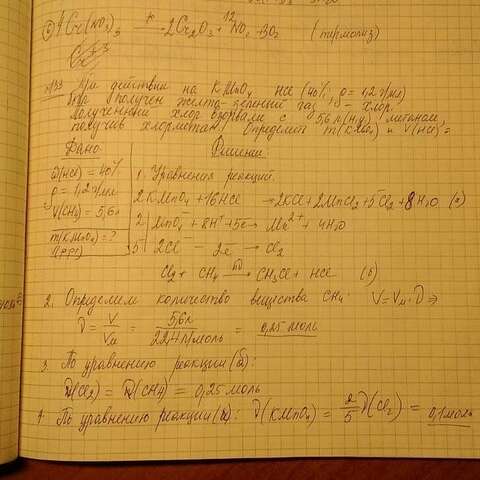 4Cr(NO3)3 t→ 2Cr2O3 + 12NO2 + 3O2 (термолиз)
При действии на KMnO4 HCl (40%, ρ=1,2 г/мл)
был получен желто-зеленый газ - хлор.
Полученный хлор взорвали с 5,6 л (н.у.) метаном,
получив хлорметан. Определит m(KMnO4) и V(HCl)=
Дано Решение
ω(HCl)=40% 1. Уравнения реакций.
ρ=1,2 г/мл 2KMnO4 + 16HCl → 2KCl + 2MnCl2 + 5Cl2 + 8H2O (а)
V(CH4)=5,6л 2 | MnO4- + 8H+ + 5e → Mn2+ + 4H2O
m(KMnO4)=? 5 | 2Cl- - 2e → Cl2
Cl2 + CH4 → CH3Cl + HCl (б)
2. Определим количество вещества CH4. V=Vм·ν ⇒
ν = V/Vм = 5,6л/22,4 л/моль = 0,25 моль
3. По уравнению реакции (б):
ν(Cl2) = ν(CH4) = 0,25 моль
4. По уравнению реакции (а): ν(KMnO4) = 2/5 ν(Cl2) = 0,1 моль